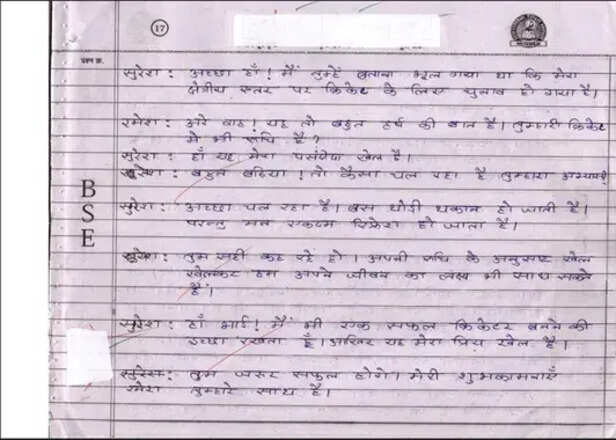 17
प्रश्न क्र.
BSE
सुरेश : अच्छा हाँ! मैं तुम्हें बताना भूल गया था कि मेरा
क्षेत्रीय स्तर पर क्रिकेट के लिए चुनाव हो गया है।
रमेश : अरे वाह! यह तो बहुत हर्ष की बात है। तुम्हारी क्रिकेट
में भी रुचि है?
सुरेश : हाँ यह मेरा पसंदीदा खेल है।
रमेश : बहुत बढ़िया! तो कैसा चल रहा है तुम्हारा अभ्यास?
सुरेश : अच्छा चल रहा है। बस थोड़ी थकान हो जाती है।
परन्तु मन एकदम रिफ्रेश हो जाता है।
सुरेश : तुम सही कह रहे हो। अपनी रुचि के अनुसार खेल
खेलकर हम अपने जीवन का लक्ष्य भी साध सकते
हैं।
सुरेश : हाँ भाई! मैं भी एक सफल क्रिकेटर बनने की
इच्छा रखता हूँ। आखिर यह मेरा प्रिय खेल है।
सुरेश : तुम जरूर सफल होगे। मेरी शुभकामनाएँ
रमेश तुम्हारे साथ है।